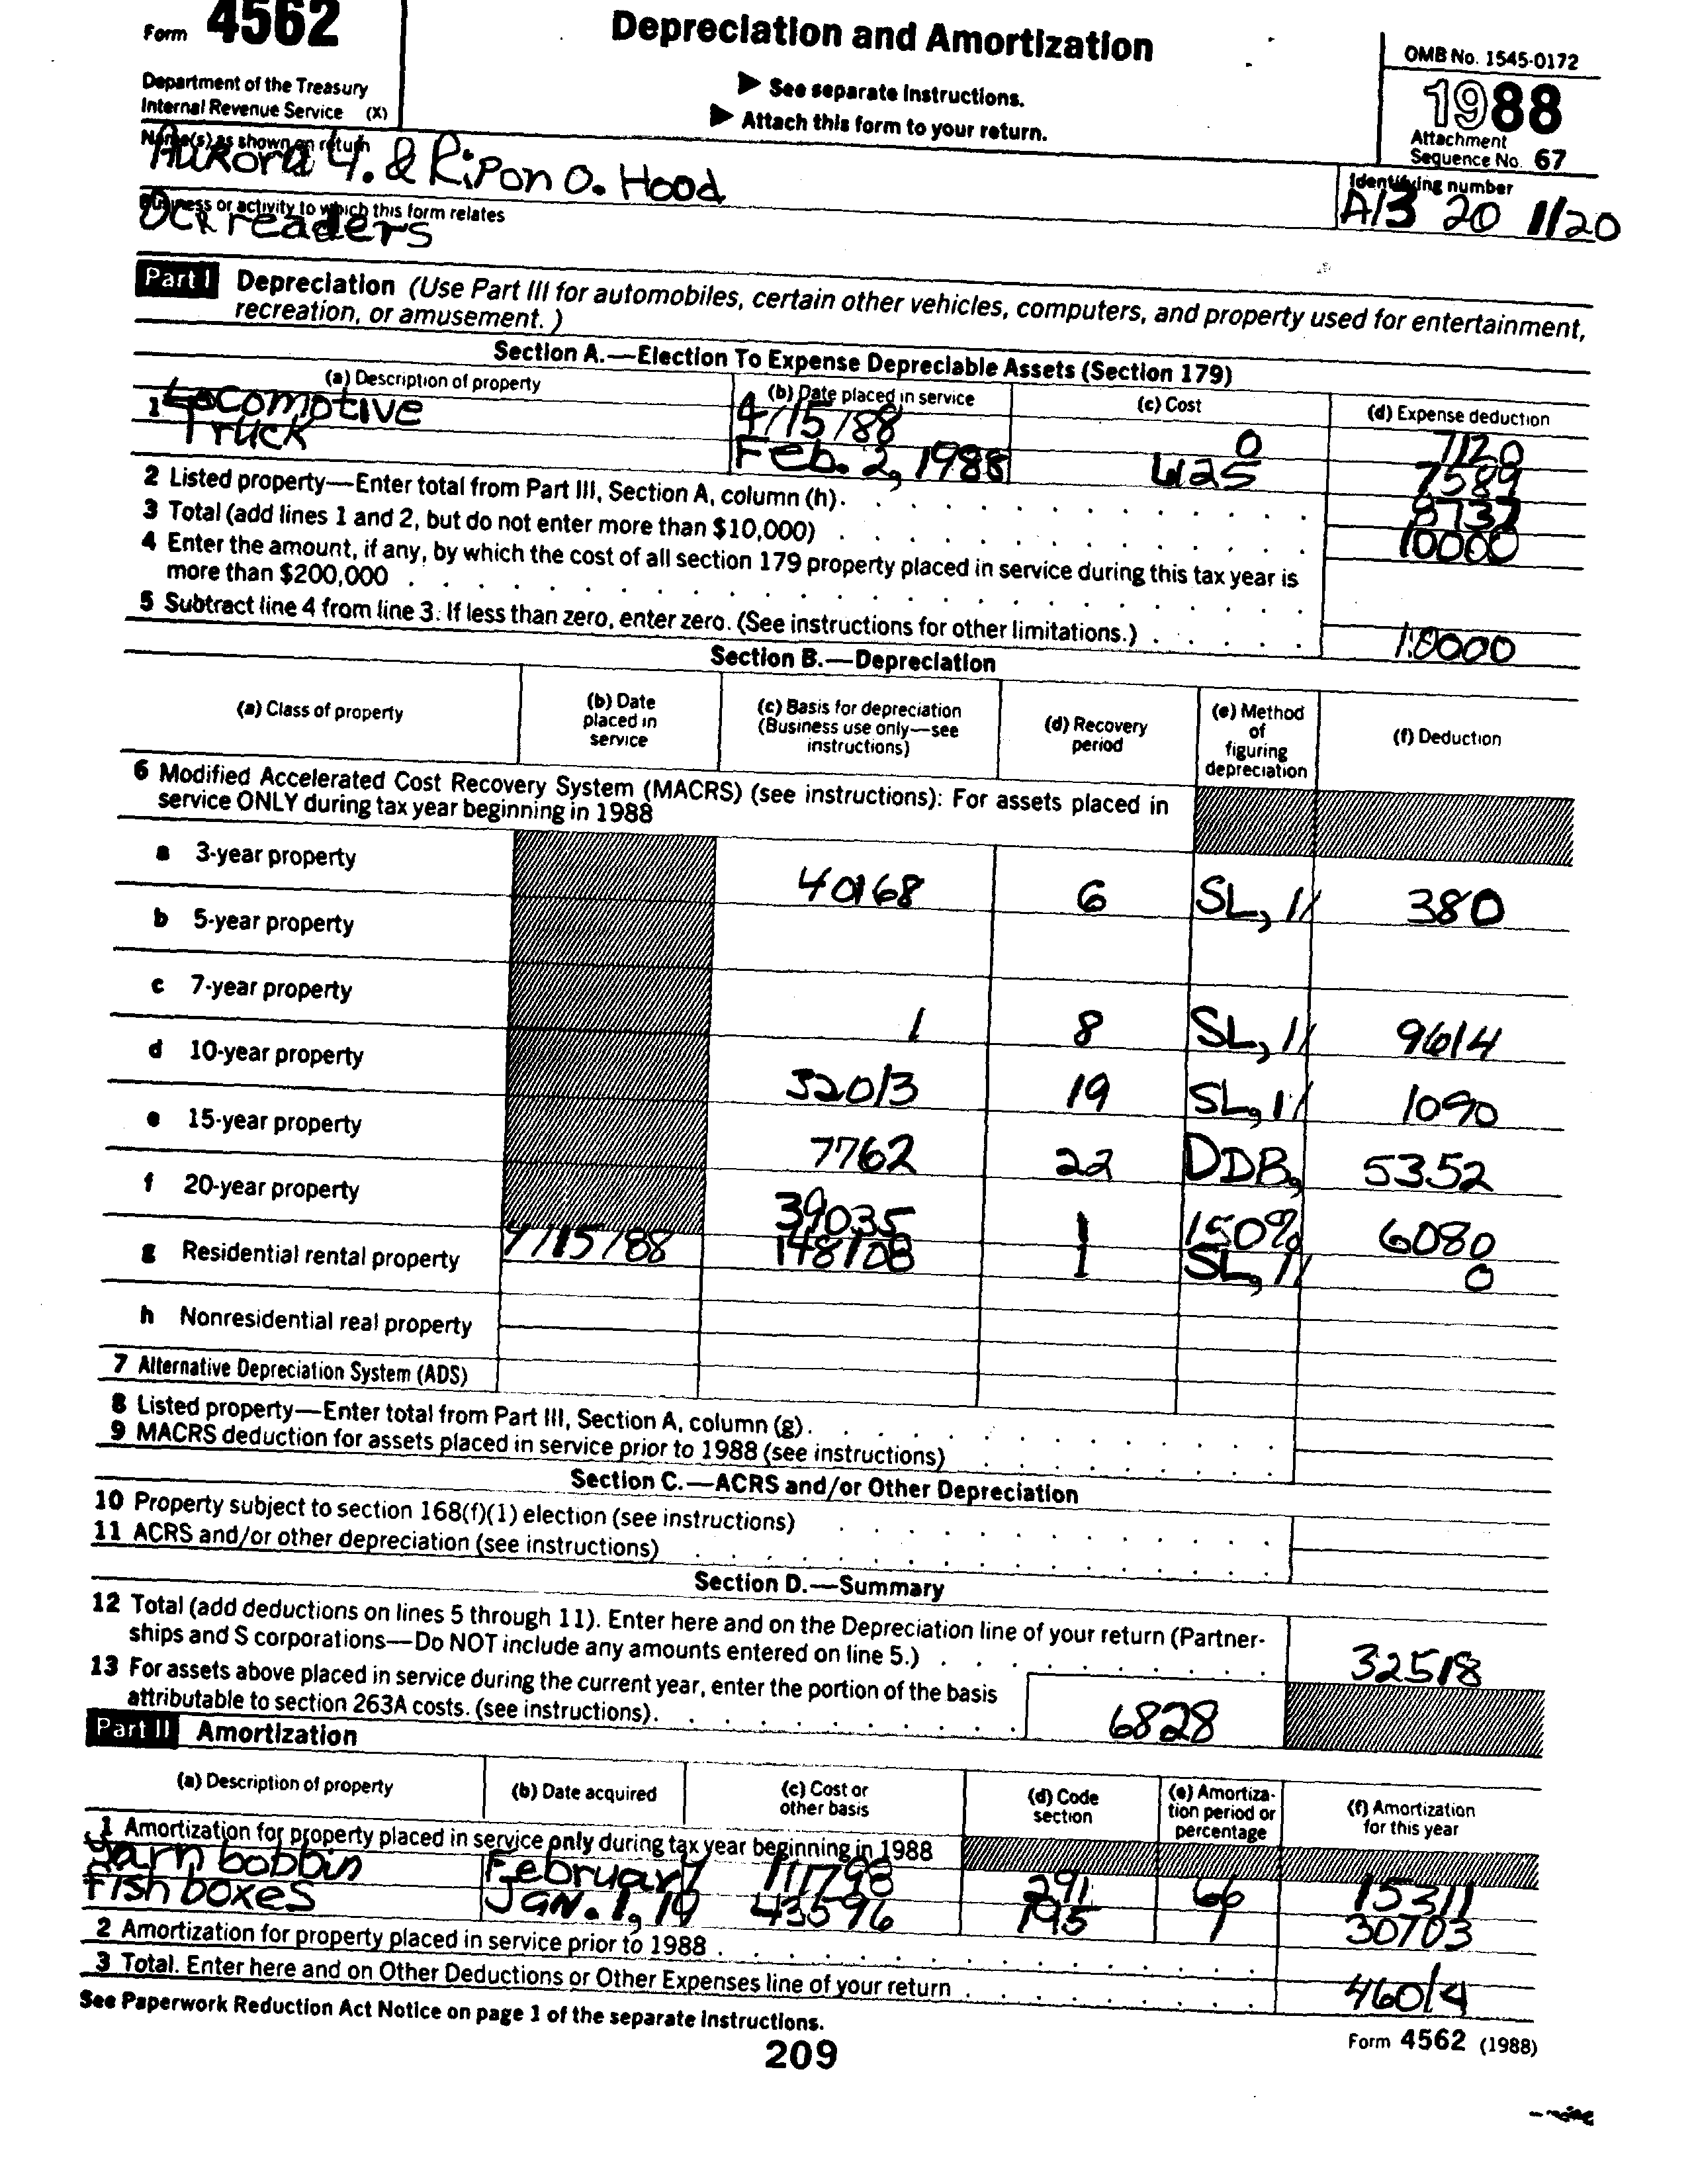 Form 4562
Department of the Treasury
Internal Revenue Service (X)
Depreciation and Amortization
► See separate instructions.
► Attach this form to your return.
OMB No. 1545-0172
1988
Attachment
Sequence No. 67
Name(s) as shown on return
Aurora Y. & Ripon O. Hood
Identifying number
A13 20 1120
Business or activity to which this form relates
OCR readers
Part I Depreciation (Use Part III for automobiles, certain other vehicles, computers, and property used for entertainment,
recreation, or amusement.)
Section A.—Election To Expense Depreciable Assets (Section 179)
(a) Description of property (b) Date placed in service (c) Cost (d) Expense deduction
1 Locomotive 4/15/88 0 7120
Truck Feb. 2, 1988 4125 7589
2 Listed property—Enter total from Part III, Section A, column (h). 8737
3 Total (add lines 1 and 2, but do not enter more than $10,000) 10000
4 Enter the amount, if any, by which the cost of all section 179 property placed in service during this tax year is
more than $200,000
5 Subtract line 4 from line 3. If less than zero, enter zero. (See instructions for other limitations.) 10000
Section B.—Depreciation
(a) Class of property (b) Date placed in service (c) Basis for depreciation (Business use only—see instructions) (d) Recovery period (e) Method of figuring depreciation (f) Deduction
6 Modified Accelerated Cost Recovery System (MACRS) (see instructions): For assets placed in
service ONLY during tax year beginning in 1988
a 3-year property 40168 6 SL, 1/ 380
b 5-year property
c 7-year property 1 8 SL, 1/ 9614
d 10-year property 32013 19 SL, 1/ 1090
e 15-year property 7762 22 DDB, 5352
f 20-year property 39035 1 150% 6080
g Residential rental property 4/15/88 148108 1 SL, 1/ 0
h Nonresidential real property
7 Alternative Depreciation System (ADS)
8 Listed property—Enter total from Part III, Section A, column (g).
9 MACRS deduction for assets placed in service prior to 1988 (see instructions)
Section C.—ACRS and/or Other Depreciation
10 Property subject to section 168(f)(1) election (see instructions)
11 ACRS and/or other depreciation (see instructions)
Section D.—Summary
12 Total (add deductions on lines 5 through 11). Enter here and on the Depreciation line of your return (Partner-
ships and S corporations—Do NOT include any amounts entered on line 5.) 32518
13 For assets above placed in service during the current year, enter the portion of the basis
attributable to section 263A costs. (see instructions). 6828
Part II Amortization
(a) Description of property (b) Date acquired (c) Cost or other basis (d) Code section (e) Amortization period or percentage (f) Amortization for this year
1 Amortization for property placed in service only during tax year beginning in 1988
Yarn bobbin February 111798 291 66 15311
Fish boxes JAN. 1, 19 43596 195 9 30703
2 Amortization for property placed in service prior to 1988
3 Total. Enter here and on Other Deductions or Other Expenses line of your return 46014
See Paperwork Reduction Act Notice on page 1 of the separate instructions.
Form 4562 (1988)
209